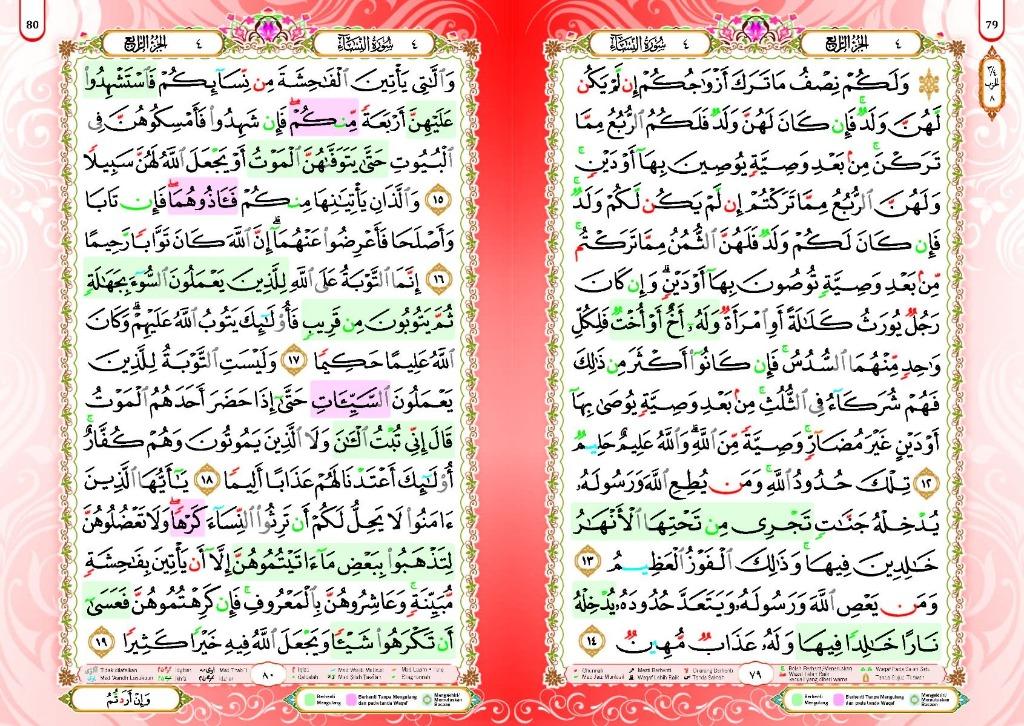 79
٤ سُورَةُ النِّسَاءِ
الجُزْءُ الرَّابِعُ ٤
٣/٤
الحزب
٨
وَلَكُمْ نِصْفُ مَا تَرَكَ أَزْوَٰجُكُمْ إِن لَّمْ يَكُن
لَّهُنَّ وَلَدٌ ۚ فَإِن كَانَ لَهُنَّ وَلَدٌ فَلَكُمُ الرُّبُعُ مِمَّا
تَرَكْنَ ۚ مِنۢ بَعْدِ وَصِيَّةٍ يُوصِينَ بِهَآ أَوْ دَيْنٍ ۚ
وَلَهُنَّ الرُّبُعُ مِمَّا تَرَكْتُمْ إِن لَّمْ يَكُن لَّكُمْ وَلَدٌ ۚ
فَإِن كَانَ لَكُمْ وَلَدٌ فَلَهُنَّ الثُّمُنُ مِمَّا تَرَكْتُم ۚ
مِّنۢ بَعْدِ وَصِيَّةٍ تُوصُونَ بِهَآ أَوْ دَيْنٍ ۗ وَإِن كَانَ
رَجُلٌ يُورَثُ كَلَٰلَةً أَوِ امْرَأَةٌ وَلَهُۥٓ أَخٌ أَوْ أُخْتٌ فَلِكُلِّ
وَٰحِدٍ مِّنْهُمَا السُّدُسُ ۚ فَإِن كَانُوٓا۟ أَكْثَرَ مِن ذَٰلِكَ
فَهُمْ شُرَكَآءُ فِى الثُّلُثِ ۚ مِنۢ بَعْدِ وَصِيَّةٍ يُوصَىٰ بِهَآ
أَوْ دَيْنٍ غَيْرَ مُضَآرٍّ ۚ وَصِيَّةً مِّنَ اللَّهِ ۗ وَاللَّهُ عَلِيمٌ حَلِيمٌ
١٢ تِلْكَ حُدُودُ اللَّهِ ۚ وَمَن يُطِعِ اللَّهَ وَرَسُولَهُۥ
يُدْخِلْهُ جَنَّٰتٍ تَجْرِى مِن تَحْتِهَا الْأَنْهَٰرُ
خَٰلِدِينَ فِيهَا ۚ وَذَٰلِكَ الْفَوْزُ الْعَظِيمُ ١٣
وَمَن يَعْصِ اللَّهَ وَرَسُولَهُۥ وَيَتَعَدَّ حُدُودَهُۥ يُدْخِلْهُ
نَارًا خَٰلِدًا فِيهَا وَلَهُۥ عَذَابٌ مُّهِينٌ ١٤
٧٩
80
٤ سُورَةُ النِّسَاءِ
الجُزْءُ الرَّابِعُ ٤
وَالَّٰتِى يَأْتِينَ الْفَٰحِشَةَ مِن نِّسَآئِكُمْ فَاسْتَشْهِدُوا۟
عَلَيْهِنَّ أَرْبَعَةً مِّنكُمْ ۖ فَإِن شَهِدُوا۟ فَأَمْسِكُوهُنَّ فِى
الْبُيُوتِ حَتَّىٰ يَتَوَفَّىٰهُنَّ الْمَوْتُ أَوْ يَجْعَلَ اللَّهُ لَهُنَّ سَبِيلًا
١٥ وَالَّذَانِ يَأْتِيَٰنِهَا مِنكُمْ فَـَٔاذُوهُمَا ۖ فَإِن تَابَا
وَأَصْلَحَا فَأَعْرِضُوا۟ عَنْهُمَآ ۗ إِنَّ اللَّهَ كَانَ تَوَّابًا رَّحِيمًا
١٦ إِنَّمَا التَّوْبَةُ عَلَى اللَّهِ لِلَّذِينَ يَعْمَلُونَ السُّوٓءَ بِجَهَٰلَةٍ
ثُمَّ يَتُوبُونَ مِن قَرِيبٍ فَأُو۟لَٰٓئِكَ يَتُوبُ اللَّهُ عَلَيْهِمْ ۗ وَكَانَ
اللَّهُ عَلِيمًا حَكِيمًا ١٧ وَلَيْسَتِ التَّوْبَةُ لِلَّذِينَ
يَعْمَلُونَ السَّيِّـَٔاتِ حَتَّىٰٓ إِذَا حَضَرَ أَحَدَهُمُ الْمَوْتُ
قَالَ إِنِّى تُبْتُ الْـَٰٔنَ وَلَا الَّذِينَ يَمُوتُونَ وَهُمْ كُفَّارٌ ۚ
أُو۟لَٰٓئِكَ أَعْتَدْنَا لَهُمْ عَذَابًا أَلِيمًا ١٨ يَٰٓأَيُّهَا الَّذِينَ
ءَامَنُوا۟ لَا يَحِلُّ لَكُمْ أَن تَرِثُوا۟ النِّسَآءَ كَرْهًا ۖ وَلَا تَعْضُلُوهُنَّ
لِتَذْهَبُوا۟ بِبَعْضِ مَآ ءَاتَيْتُمُوهُنَّ إِلَّآ أَن يَأْتِينَ بِفَٰحِشَةٍ
مُّبَيِّنَةٍ ۚ وَعَاشِرُوهُنَّ بِالْمَعْرُوفِ ۚ فَإِن كَرِهْتُمُوهُنَّ فَعَسَىٰٓ
أَن تَكْرَهُوا۟ شَيْـًٔا وَيَجْعَلَ اللَّهُ فِيهِ خَيْرًا كَثِيرًا ١٩
٨٠
وَإِنْ أَرَدتُّمُ